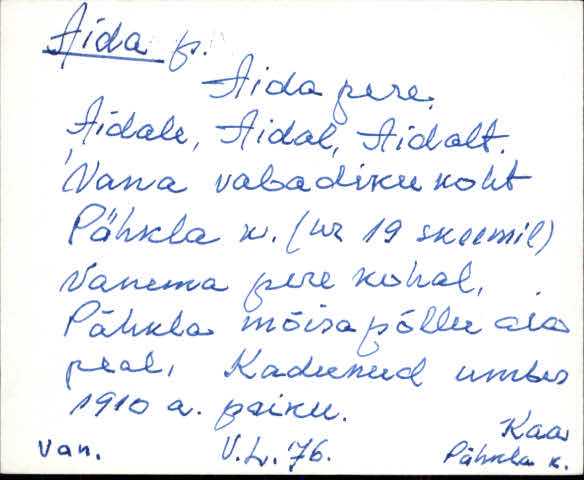 Aida p.
Aida pere.
Aidale, Aidal, Aidalt.
Vana vabadiku koht
Pähkla k. (nr 19 skeemil)
Vanema pere kohal,
Pähkla mõisapõllu ala
peal. Kadunud umbes
1910 a. paiku.
Kaa
Van. V.L.'76. Pähkla k.